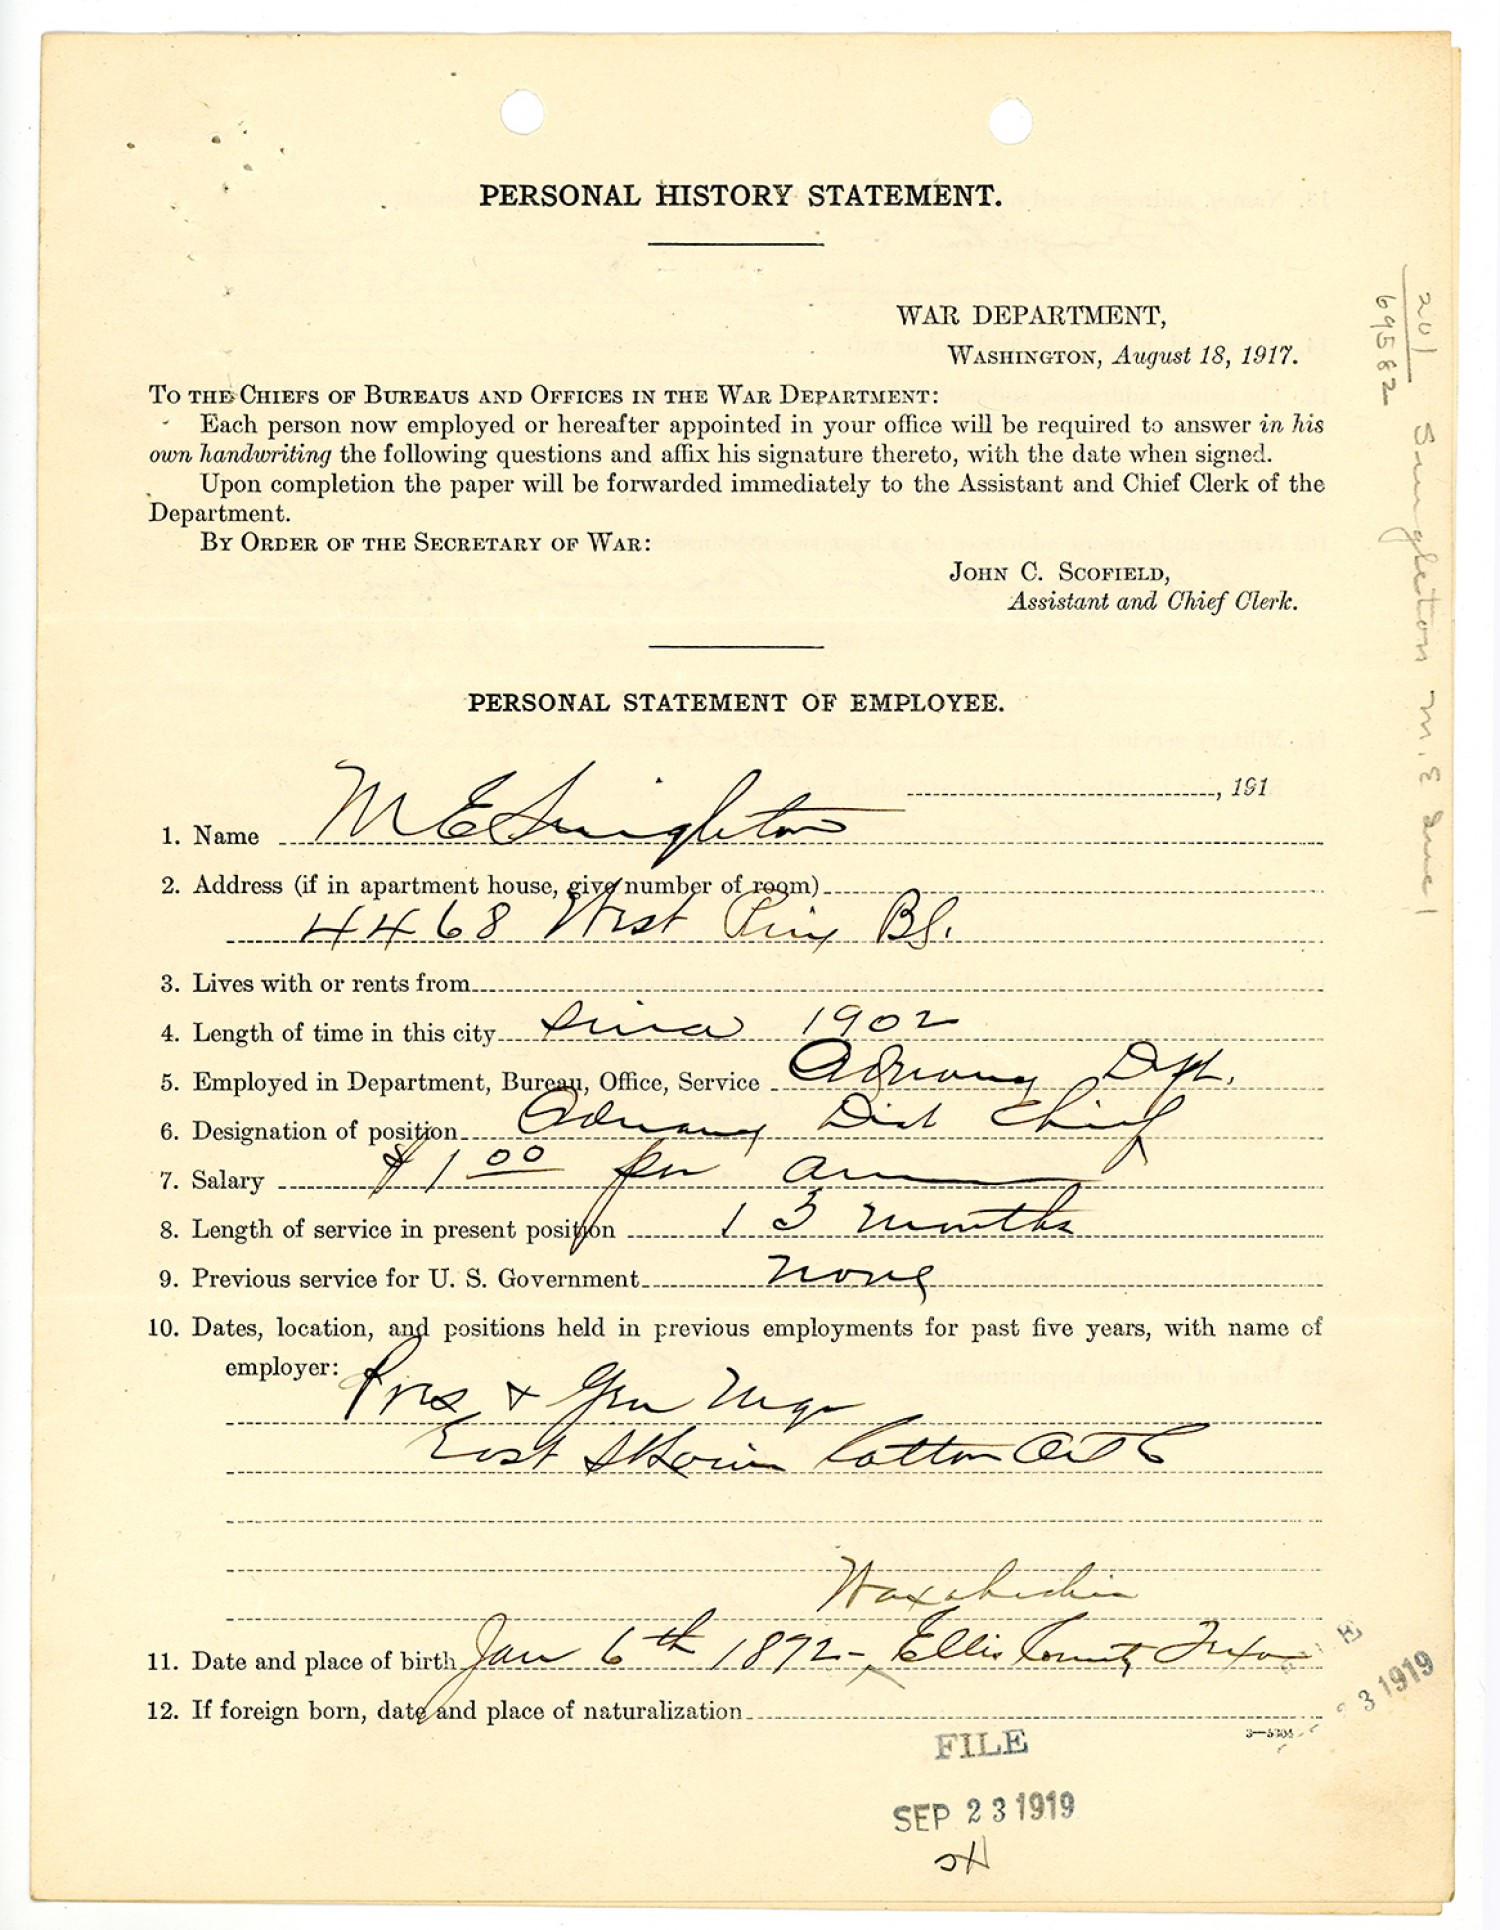 PERSONAL HISTORY STATEMENT.
WAR DEPARTMENT,
WASHINGTON, August 18, 1917.
TO THE CHIEFS OF BUREAUS AND OFFICES IN THE WAR DEPARTMENT:
Each person now employed or hereafter appointed in your office will be required to answer in his
own handwriting the following questions and affix his signature thereto, with the date when signed.
Upon completion the paper will be forwarded immediately to the Assistant and Chief Clerk of the
Department.
BY ORDER OF THE SECRETARY OF WAR:
JOHN C. SCOFIELD,
Assistant and Chief Clerk.
PERSONAL STATEMENT OF EMPLOYEE.
, 191
1. Name M E Singleton
2. Address (if in apartment house, give number of room)
4468 West Pine Bl.
3. Lives with or rents from
4. Length of time in this city since 1902
5. Employed in Department, Bureau, Office, Service Ordnance Dept.
6. Designation of position Ordnance Dist Chief
7. Salary $1 00 per annum
8. Length of service in present position 13 months
9. Previous service for U. S. Government none
10. Dates, location, and positions held in previous employments for past five years, with name of
employer: Pres & Gen Mgr
East St Louis Cotton Oil Co
Waxahachie
11. Date and place of birth Jan 6th 1872 - Ellis County Texas
12. If foreign born, date and place of naturalization
FILE
SEP 23 1919
201
69582
Singleton M. E.
3 1919